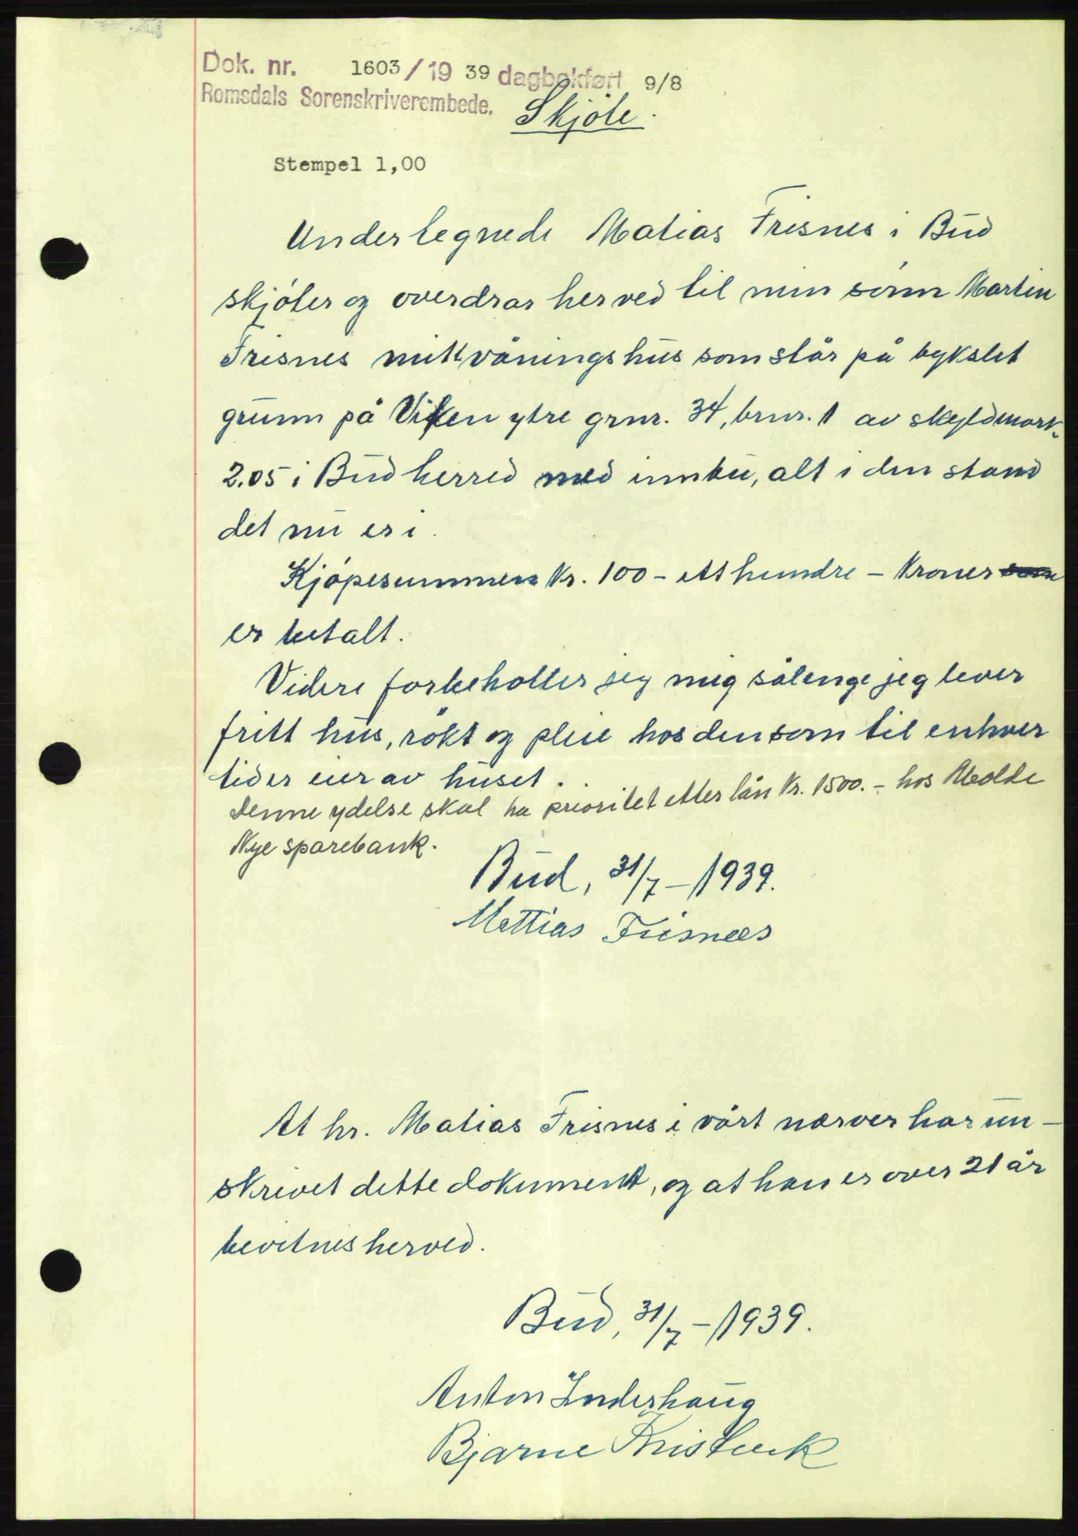 Dok. nr. 1603 / 19 39 dagbokført 9/8
Romsdals Sorenskriverembede.
Skjøte.
Stempel 1,00
Undertegnede Matias Frisnes i Bud
skjøter og overdrar herved til min sønn Martin
Frisnes mitt våningshus som står på bykslet
grunn på Viken ytre grnr. 34, brnr. 1 av skyldmark
2.05 i Bud herred med innbu, alt i den stand
det nu er i.
Kjøpesummen Kr. 100 - ett hundre - Kroner
er betalt.
Videre forbeholder jeg mig sålenge jeg lever
fritt hus, røkt og pleie hos den som til enhver
tid er eier av huset.
Denne ydelse skal ha prioritet etter lån Kr. 1500.- hos Molde
Nye sparebank.
Bud, 31/7 - 1939.
Mattias Frisnees
At hr. Matias Frisnes i vårt nærver har un-
skrevet dette dokument, og at han er over 21 år
bevitnes herved.
Bud, 31/7 - 1939.
Anton Inderhaug
Bjarne